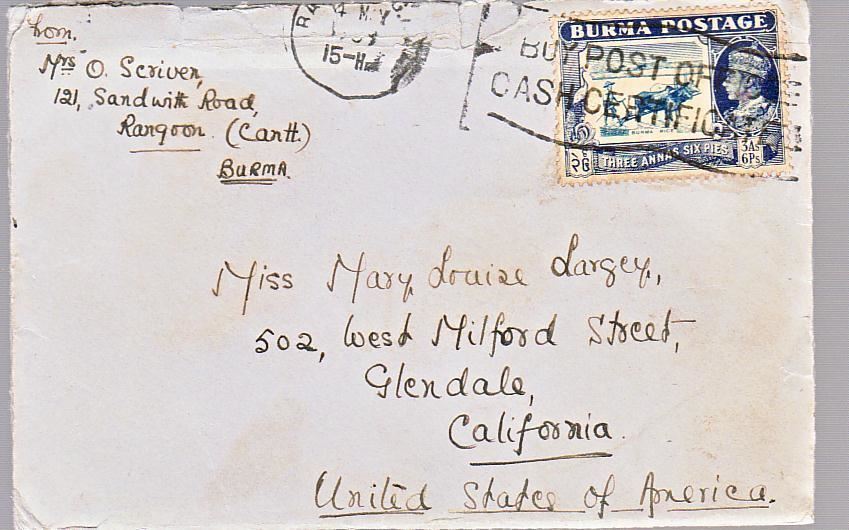 From,
Mrs O. Scriven,
121, Sandwith Road,
Rangoon (Cantt.)
BURMA.
15-H
BUY POST OFFICE
CASH CERTIFICATES
BURMA POSTAGE
BURMA RICE
THREE ANNAS SIX PIES
3AS
6Ps
Miss Mary Louise Largey,
502, West Milford Street,
Glendale,
California.
United States of America.